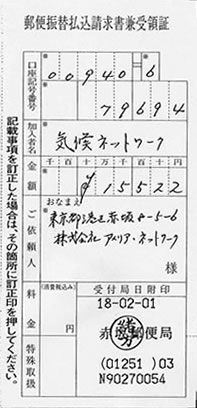 郵便振替払込請求書兼受領証
口座記号番号
00940 6
79694
加入者名
気候ネットワーク
金額
千百十万千百十円
¥15522
ご依頼人
おなまえ
東京都港区赤坂4-5-6
株式会社アメリア・ネットワーク
様
料金
(消費税込み)
特殊取扱
受付局日附印
18-02-01
赤坂郵便局
(01251 )03
N90270054
記載事項を訂正した場合は、その箇所に訂正印を押してください。